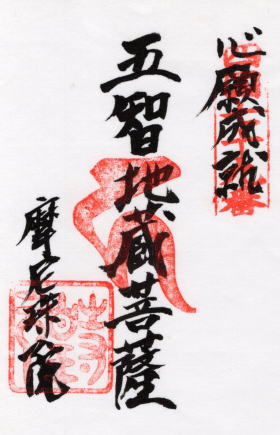 心願成就
五智地蔵菩薩
摩尼珠院